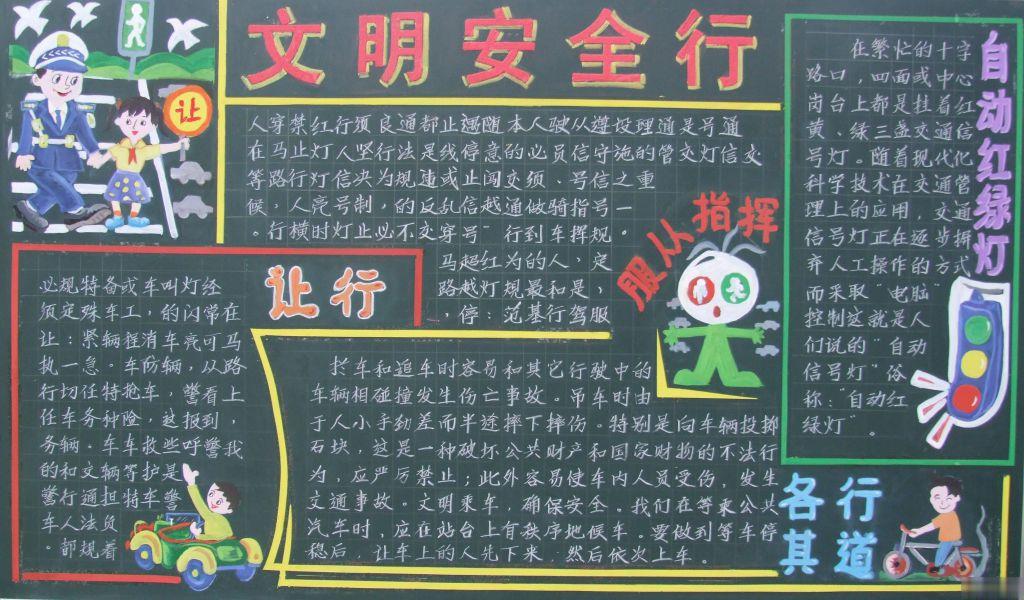 文明安全行
让
人穿禁红行须良通都止闯随本人驶从遵设理通是号通
在马止灯人坚行法是线停意的必员信守施的管交灯信交
等路行灯信决为规违或止闯交须、号信之重
候，人亮号制，的反乱信越通做骑指号一
。行横时灯止必不交穿号“行到车挥规。
马超红为的人，定
路越灯规最和是，
，停：范基行驾服
服从指挥
让行
必规特备或车叫灯经
须定殊车工，的闪常在
让：紧辆程消车亮可马
执一急。车防辆，从路
行切任特抢车，警看上
任车务种险，这报到，
务辆。车车救些呼警我
的和文辆等护是
警行通担特车警
车人法负
。都规着
拦车和追车时容易和其它行驶中的
车辆相碰撞发生伤亡事故。吊车时由
于人小手劲差而半途摔下摔伤。特别是向车辆投掷
石块，这是一种破坏公共财产和国家财物的不法行
为，应严厉禁止；此外容易使车内人员受伤，发生
交通事故。文明乘车，确保安全。我们在等乘公共
汽车时，应在站台上有秩序地候车。要做到等车停
稳后，让车上的人先下来，然后依次上车。
自动红绿灯
在繁忙的十字
路口，四面或中心
岗台上都是挂着红
黄、绿三盏交通信
号灯。随着现代化
科学技术在交通管
理上的应用，交通
信号灯正在逐步摒
弃人工操作的方式
而采取“电脑”
控制这就是人
们说的“自动
信号灯”俗
称：“自动红
绿灯”。
各行
其道